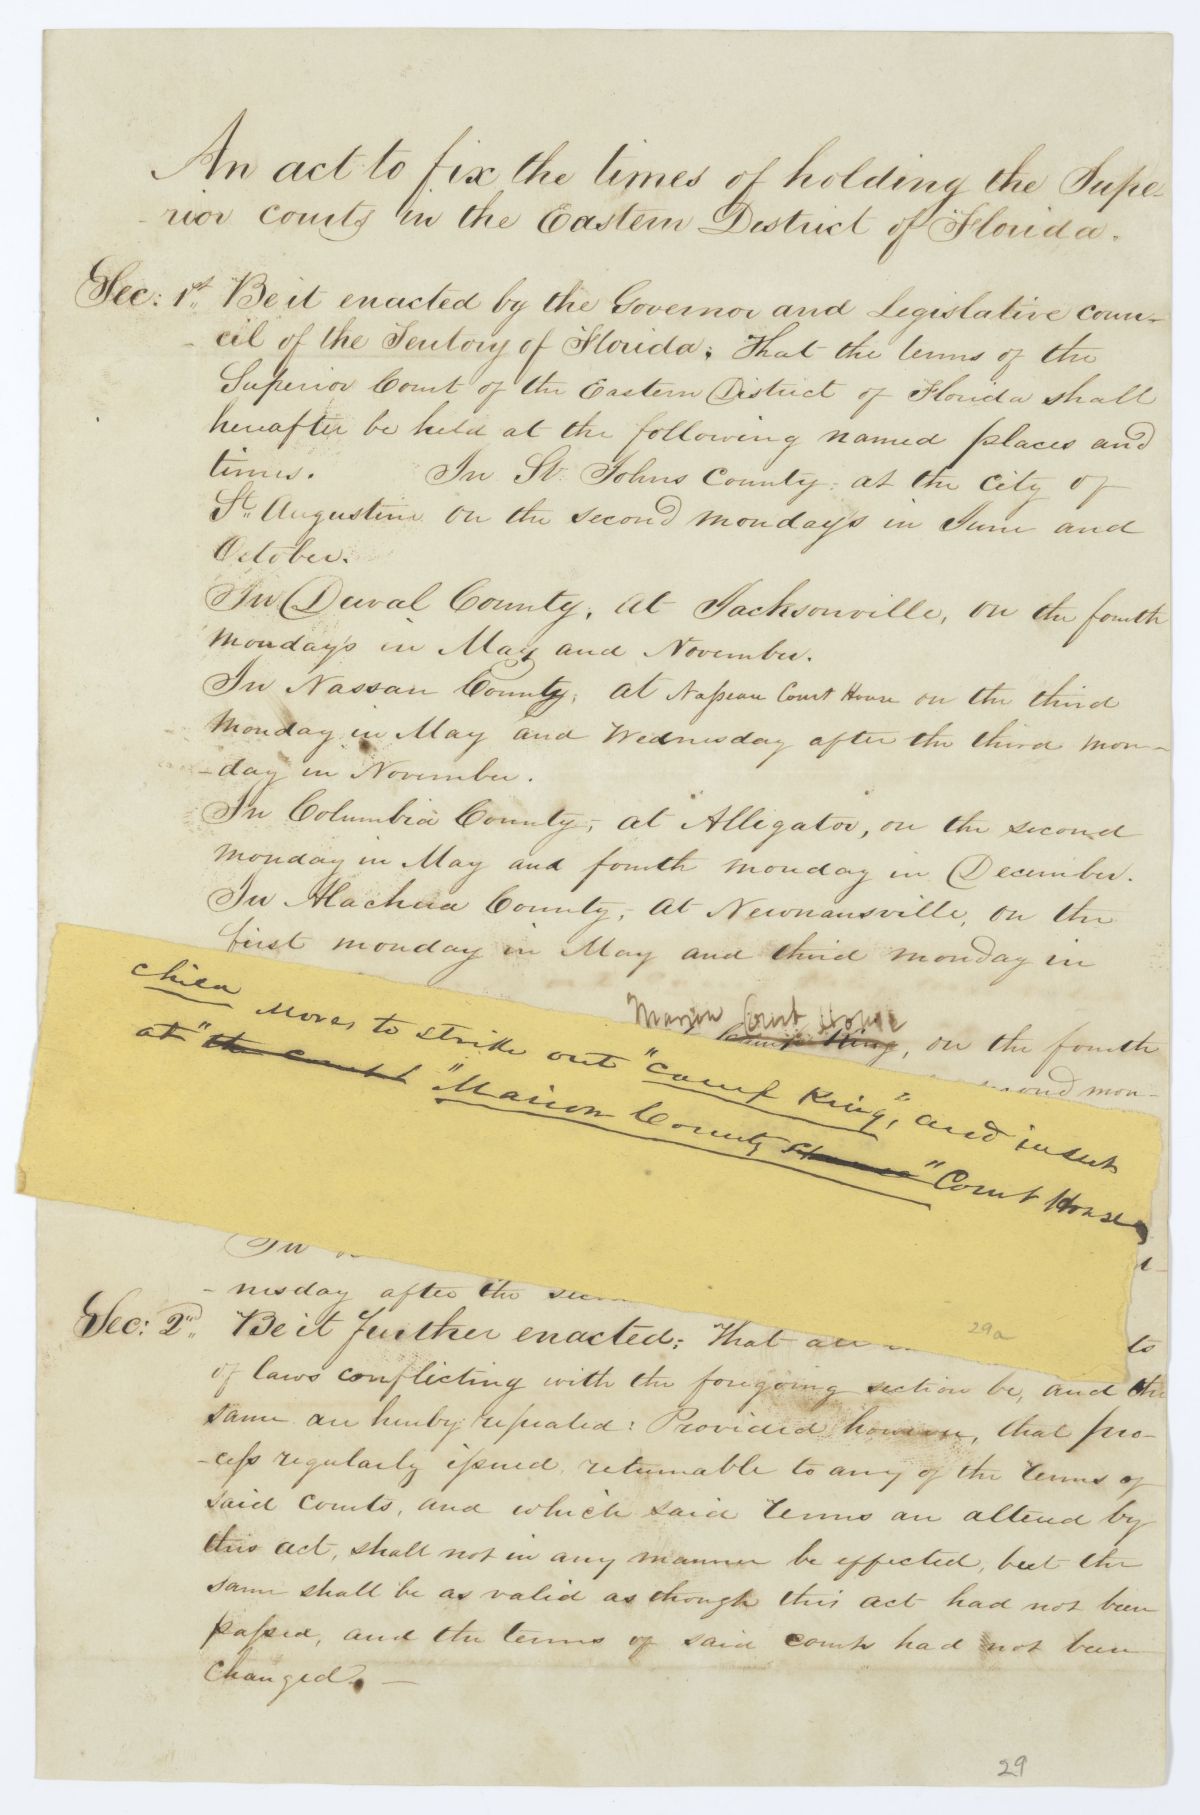 An act to fix the times of holding the Supe-
rior courts in the Eastern District of Florida.
Sec: 1st Be it enacted by the Governor and Legislative coun-
cil of the Territory of Florida; That the terms of the
Superior Court of the Eastern District of Florida shall
hereafter be held at the following named places and
times. In St. Johns County: at the city of
St. Augustine on the second mondays in June and
October.
In Duval County, at Jacksonville, on the fourth
mondays in May and November.
In Nassau County, at Nassau Court House on the third
monday in May and Wednesday after the third mon-
-day in November.
In Columbia County, at Alligator, on the second
monday in May and fourth monday in December.
In Alachua County, at Newnansville, on the
first monday in May and third monday in
Marion Court House
Camp King, on the fourth
second mon-
Child moves to strike out "Camp King", and insert
at "the court "Marion County" Court House
In
-nesday after the
Sec: 2nd. Be it further enacted; That all
29a
ts
of laws conflicting with the foregoing section be, and the
same are hereby repealed: Provided however, that pro-
-cess regularly issued, returnable to any of the terms of
said courts, and which said terms are altered by
this act, shall not in any manner be effected, but the
same shall be as valid as though this act had not been
passed, and the terms of said courts had not been
changed. —
29